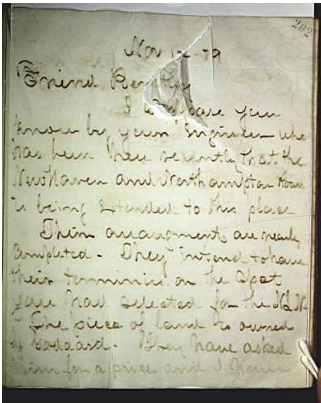 202
Nov 12 - 79
Friend
I am sure you
know by your Engineer who
has been here recently that the
New Haven and Northampton Road
is being extended to this place
Their arrangments are nearly
completed - They intend to have
their terminus on the spot
you had selected for the
The piece of land is owned
by Goddard. They have asked
him for a price and I